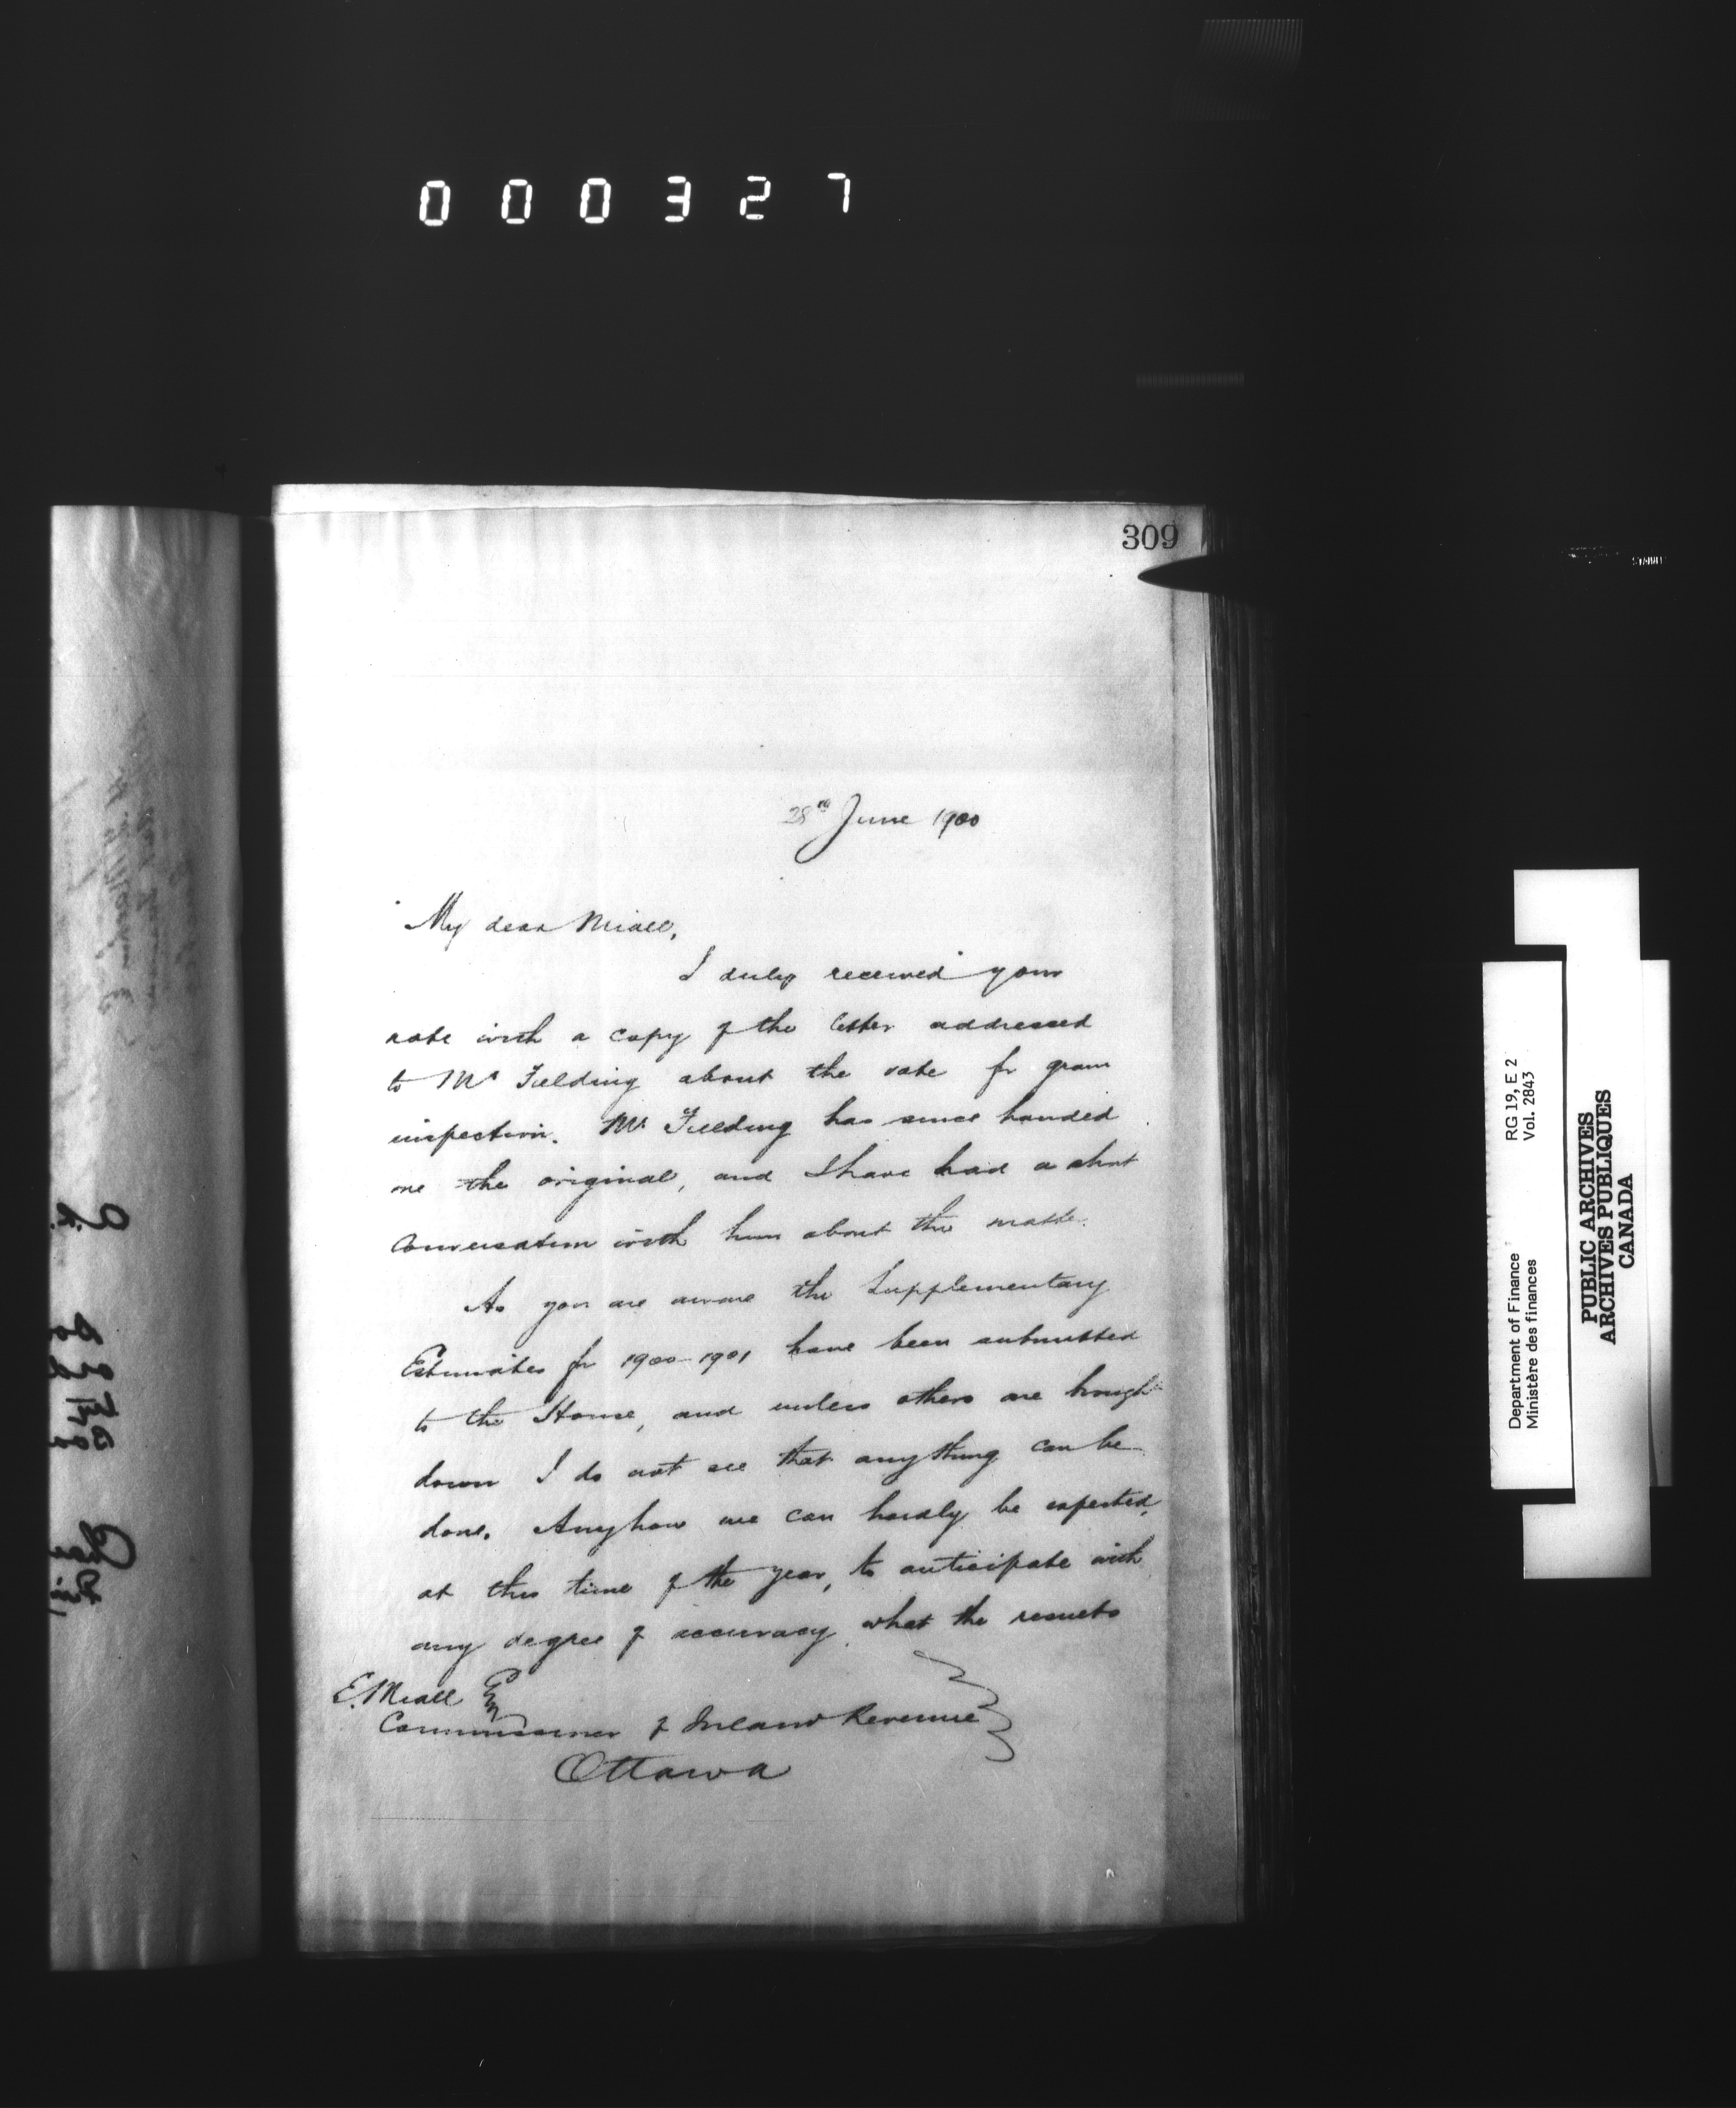 000327
309
28th June 1900
My dear Miall,
I duly received your
note with a copy of the letter addressed
to Mr Fielding about the vote for grain
inspection. Mr Fielding has since handed
me the original, and I have had a short
conversation with him about the matter.
As you are aware the Supplementary
Estimates for 1900-1901 have been submitted
to the House, and unless others are brought
down I do not see that anything can be
done. Anyhow we can hardly be expected,
at this time of the year, to anticipate with
any degree of accuracy what the results
E. Miall Esq
Commissioner of Inland Revenue
Ottawa
Department of Finance RG 19, E 2
Ministère des finances Vol. 2843
PUBLIC ARCHIVES
ARCHIVES PUBLIQUES
CANADA